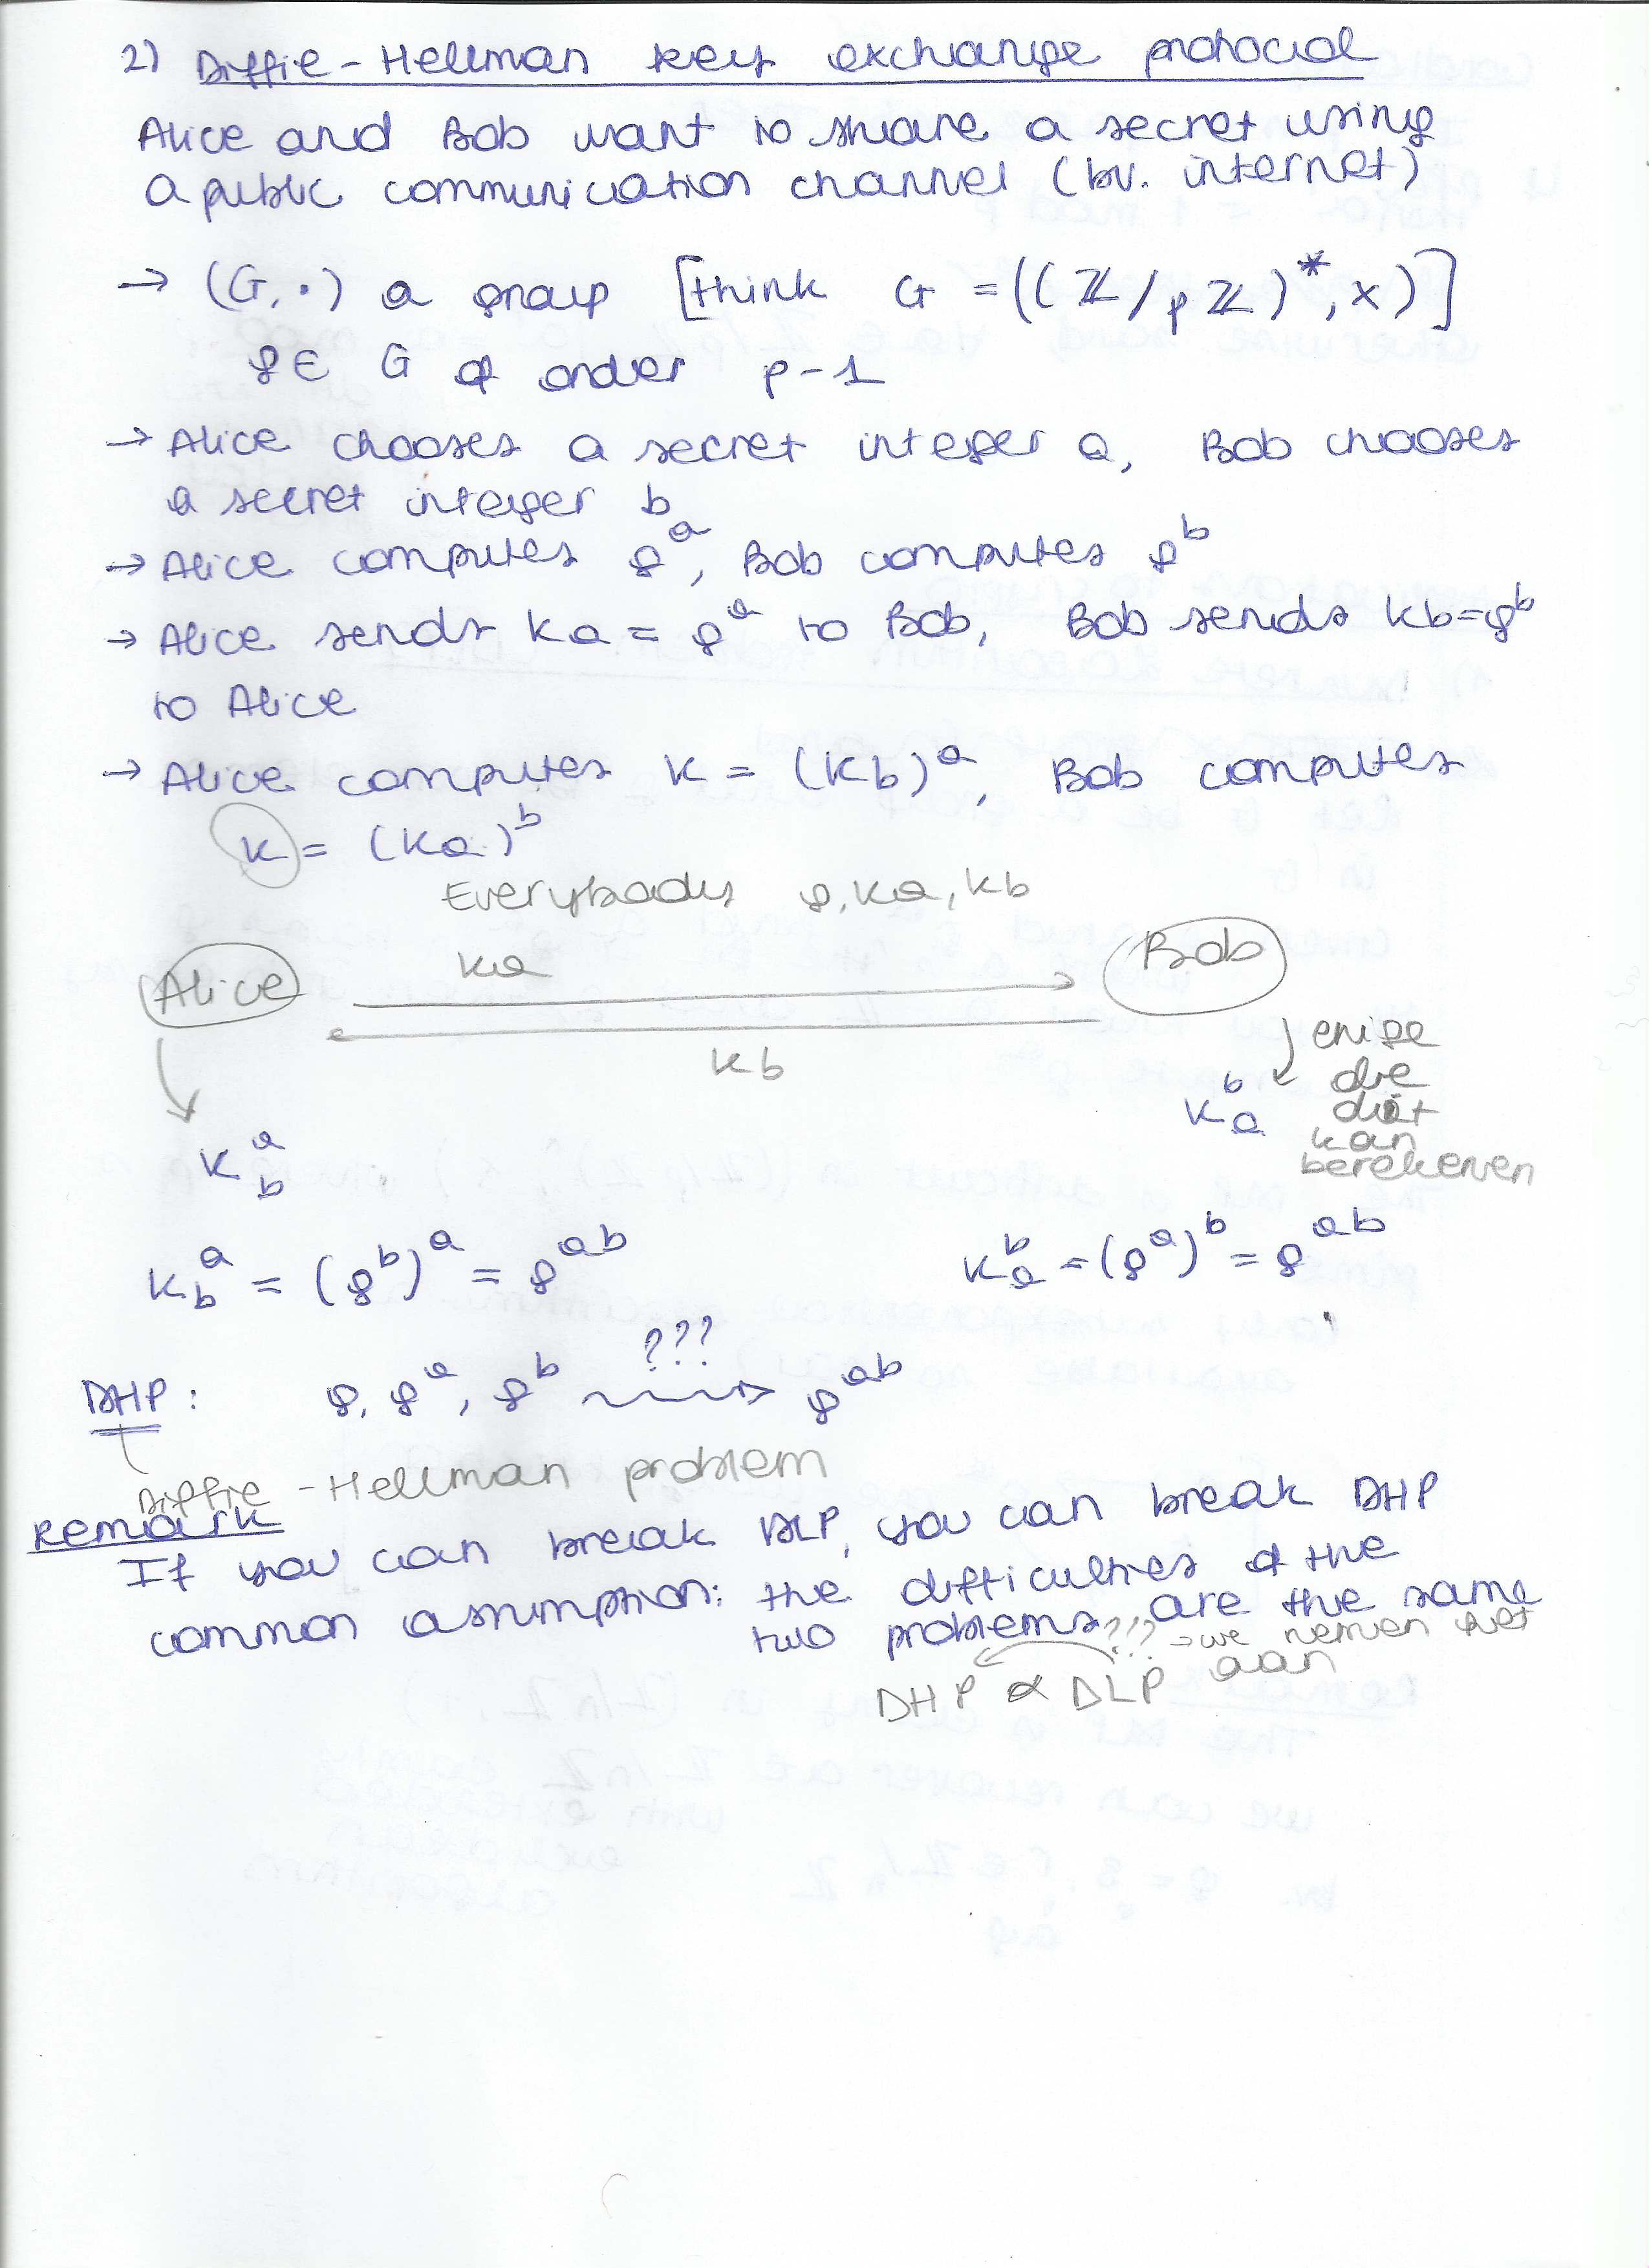 2) Diffie-Hellman key exchange protocol
Alice and Bob want to share a secret using
a public communication channel (bv. internet)
→ (G,·) a group [think G = ((ℤ/pℤ)*, x)]
g ∈ G of order p-1
→ Alice chooses a secret integer a, Bob chooses
a secret integer b
→ Alice computes g^a, Bob computes g^b
→ Alice sends ka = g^a to Bob, Bob sends kb=g^b
to Alice
→ Alice computes k = (kb)^a, Bob computes
k = (ka)^b
Everybody g, ka, kb
Alice ka Bob
kb
enige
die
dit
kan
berekenen
k_b^a k_a^b
k_b^a = (g^b)^a = g^ab k_a^b = (g^a)^b = g^ab
???
DHP: g, g^a, g^b ⇝ g^ab
Diffie-Hellman problem
Remark
If you can break DLP, you can break DHP
common assumption: the difficulties of the
two problems are the same
??? → we nemen het
aan
DHP α DLP